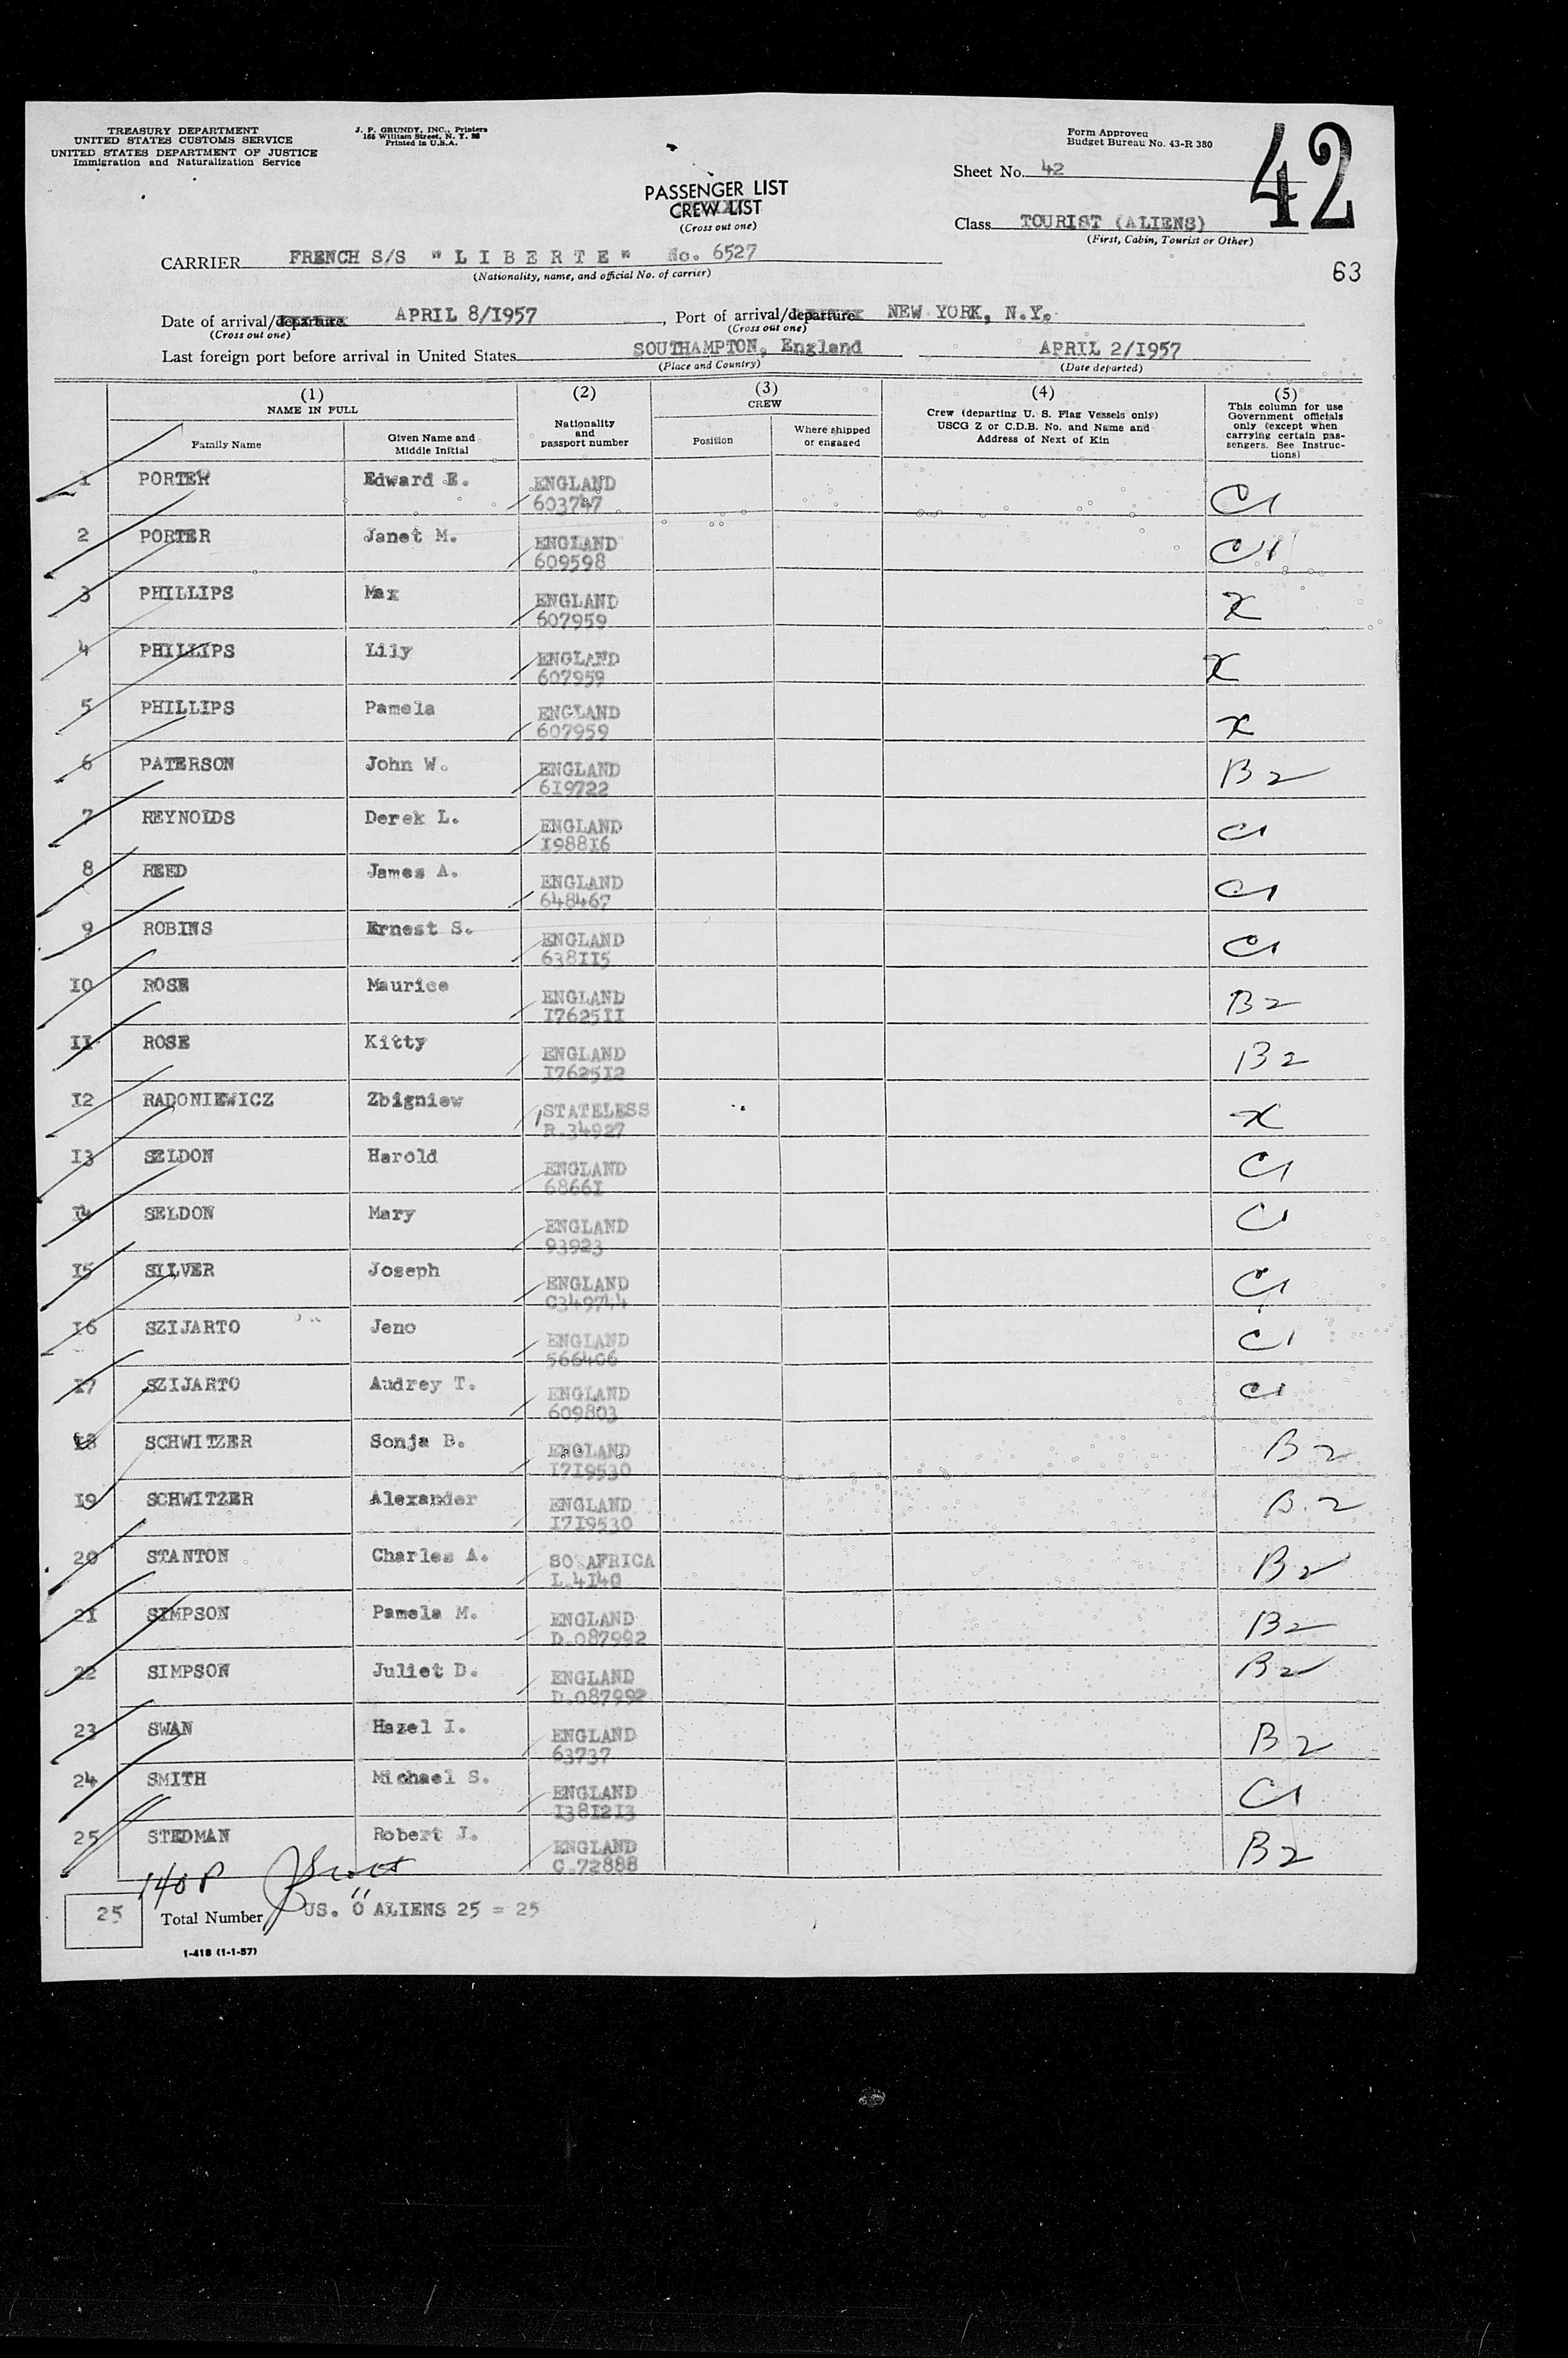 TREASURY DEPARTMENT
UNITED STATES CUSTOMS SERVICE
UNITED STATES DEPARTMENT OF JUSTICE
Immigration and Naturalization Service
J. P. GRUNDY, INC., Printers
165 William Street, N. Y. 38
Printed in U.S.A.
Form Approved
Budget Bureau No. 43-R 380
Sheet No. 42
42
PASSENGER LIST
CREW LIST
(Cross out one)
Class TOURIST (ALIENS)
(First, Cabin, Tourist or Other)
CARRIER FRENCH S/S "LIBERTE" No. 6527
(Nationality, name, and official No. of carrier)
63
Date of arrival/departure APRIL 8/I957, Port of arrival/departure NEW YORK, N.Y.
(Cross out one) (Cross out one)
Last foreign port before arrival in United States SOUTHAMPTON, England APRIL 2/I957
(Place and Country) (Date departed)
(1) NAME IN FULL
Family Name
Given Name and Middle Initial
(2) Nationality and passport number
(3) CREW
Position
Where shipped or engaged
(4) Crew (departing U. S. Flag Vessels only) USCG Z or C.D.B. No. and Name and Address of Next of Kin
(5) This column for use Government officials only (except when carrying certain passengers. See Instructions)
1 PORTER Edward E. ENGLAND 603747 C1
2 PORTER Janet M. ENGLAND 609598 C1
3 PHILLIPS Max ENGLAND 607959 X
4 PHILLIPS Lily ENGLAND 607959 X
5 PHILLIPS Pamela ENGLAND 607959 X
6 PATERSON John W. ENGLAND 6I9722 B2
7 REYNOLDS Derek L. ENGLAND I988I6 C1
8 REED James A. ENGLAND 648467 C1
9 ROBINS Ernest S. ENGLAND 638II5 C1
I0 ROSE Maurice ENGLAND I7625II B2
II ROSE Kitty ENGLAND I7625I2 B2
I2 RADONIEWICZ Zbigniew STATELESS R.34927 X
I3 SELDON Harold ENGLAND 6866I C1
I4 SELDON Mary ENGLAND 93923 C1
I5 SILVER Joseph ENGLAND C349744 C1
I6 SZIJARTO Jeno ENGLAND 566406 C1
I7 SZIJARTO Audrey T. ENGLAND 609803 C1
I8 SCHWITZER Sonja B. ENGLAND I7I9530 B2
I9 SCHWITZER Alexander ENGLAND I7I9530 B.2
20 STANTON Charles A. SO.AFRICA L.4I40 B2
2I SIMPSON Pamela M. ENGLAND D.087992 B2
22 SIMPSON Juliet D. ENGLAND D.087992 B2
23 SWAN Hazel I. ENGLAND 63737 B2
24 SMITH Michael S. ENGLAND I38I2I3 C1
25 STEDMAN Robert J. ENGLAND C.72888 B2
140P
25 Total Number US. 0 ALIENS 25 = 25
1-418 (1-1-57)